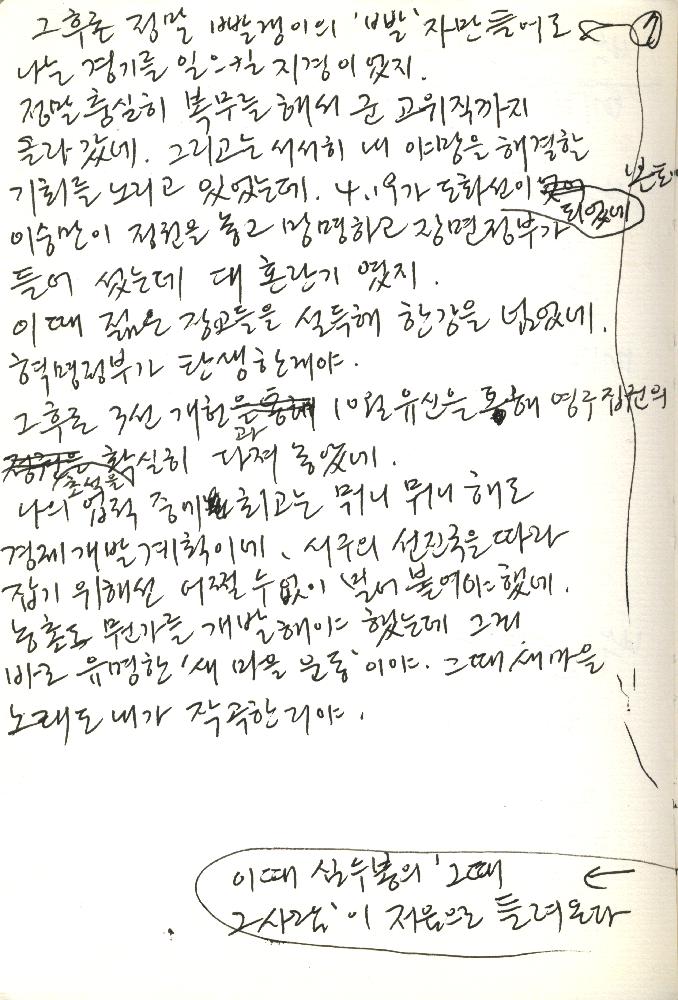 그후론 정말 빨갱이의 '빨'자만 들어도 ← ①
나는 경기를 일으킬 지경이었지.
정말 충실히 복무를 해서 군 고위직까지
올라 갔네. 그리고는 서서히 내 야망을 해결할
기회를 노리고 있었는데. 4.19가 도화선이
되었네
이승만이 정권을 놓고 망명하고 장면정부가
들어 섰는데 대 혼란기 였지.
이때 젊은 장교들을 설득해 한강을 넘었네.
혁명정부가 탄생한게야.
그후로 3선 개헌과 10월 유신을 통해 영구집권의
초석을 확실히 다져 놓았네.
나의 업적 중에 최고는 뭐니 뭐니 해도
경제개발계획이네. 서구의 선진국을 따라
잡기 위해선 어쩔 수 없이 밀어 붙여야 했네.
농촌도 뭔가를 개발해야 했는데 그게
바로 유명한 '새 마을 운동'이야. 그때 새마을
노래도 내가 작곡한거야.
이때 심수봉의 '그때 ←
그사람'이 저음으로 들려온다